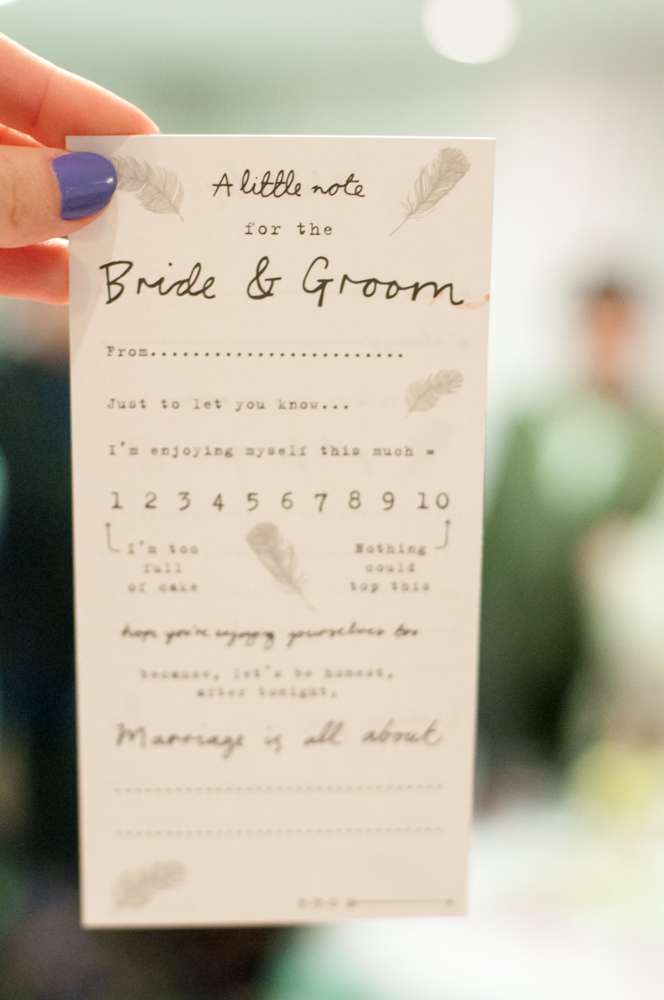 A little note
for the
Bride & Groom
From........................
Just to let you know...
I'm enjoying myself this much =
1 2 3 4 5 6 7 8 9 10
I'm too Nothing
full could
of cake top this
hope you're enjoying yourselves too
because, let's be honest,
after tonight,
Marriage is all about